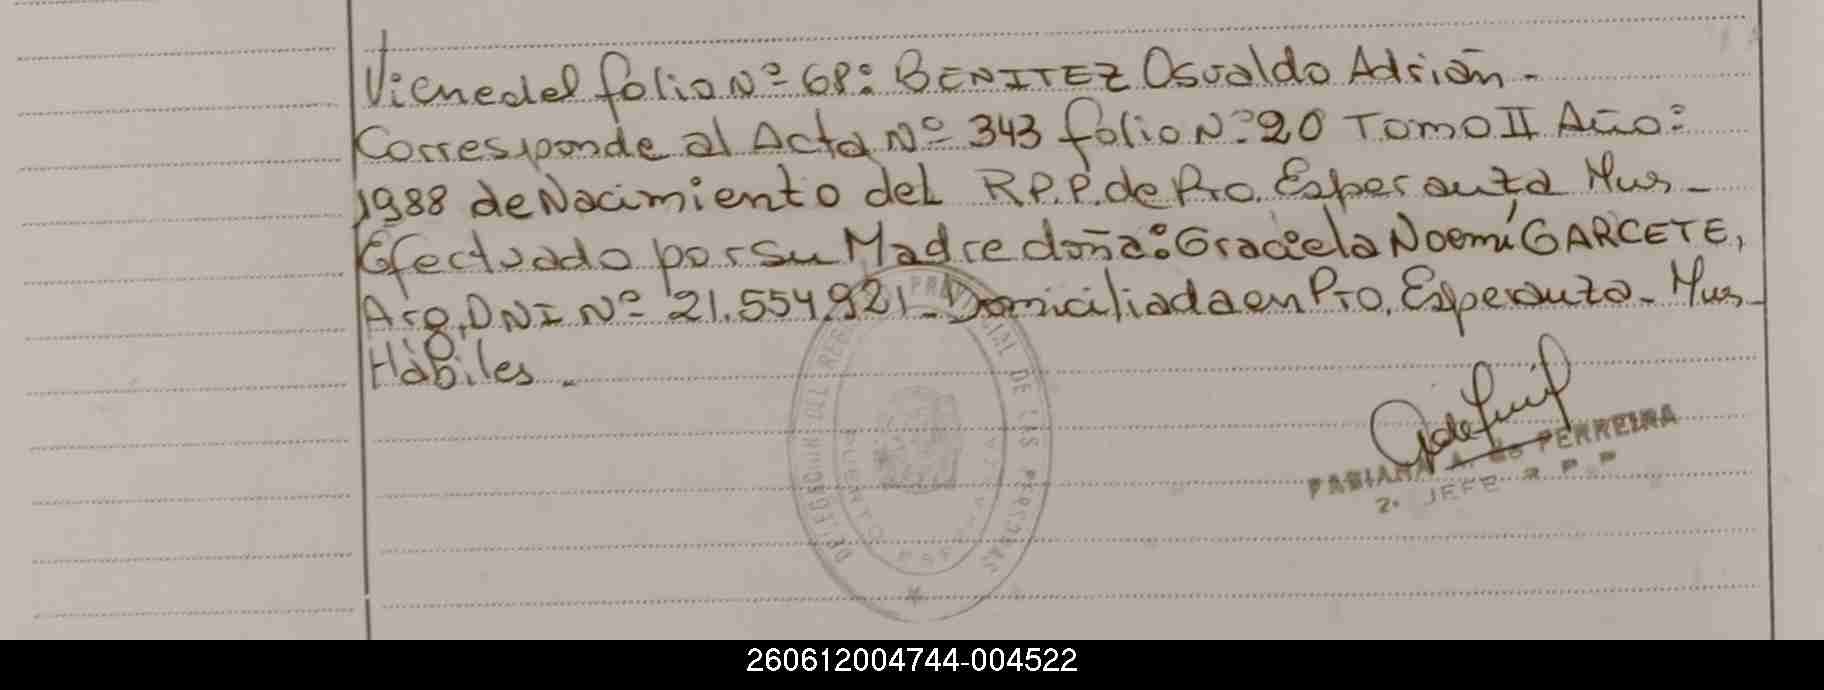 Viene del folio Nº 68: BENITEZ Osvaldo Adrián -
Corresponde al Acta Nº 343 folio Nº 20 Tomo II Año:
1988 de Nacimiento del R.P.P. de Pto. Esperanza Mns -
Efectuado por su Madre doña: Graciela Noemí GARCETE,
Arg, DNI Nº 21.554.921 - Domiciliada en Pto. Esperanza - Mns -
Hábiles -
PROVINCIAL DE LAS PERSONAS
FABIANA A. FERREIRA
2. JEFE R P P
260612004744-004522